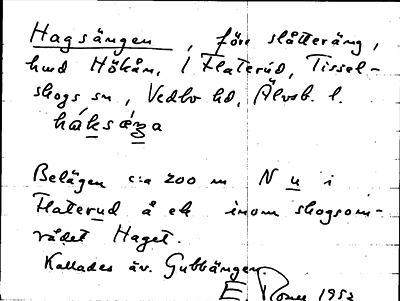 Hagsängen, förr slåtteräng,
hmd Hökån, i Flaterud, Tissel-
skogs sn, Vedbo hd, Älvsb. l.
håksæŋa
Belägen c:a 200 m N u i
Flaterud å ek inom skogsom-
rådet Haget.
Kallades äv. Gubbängen.
E. 1952